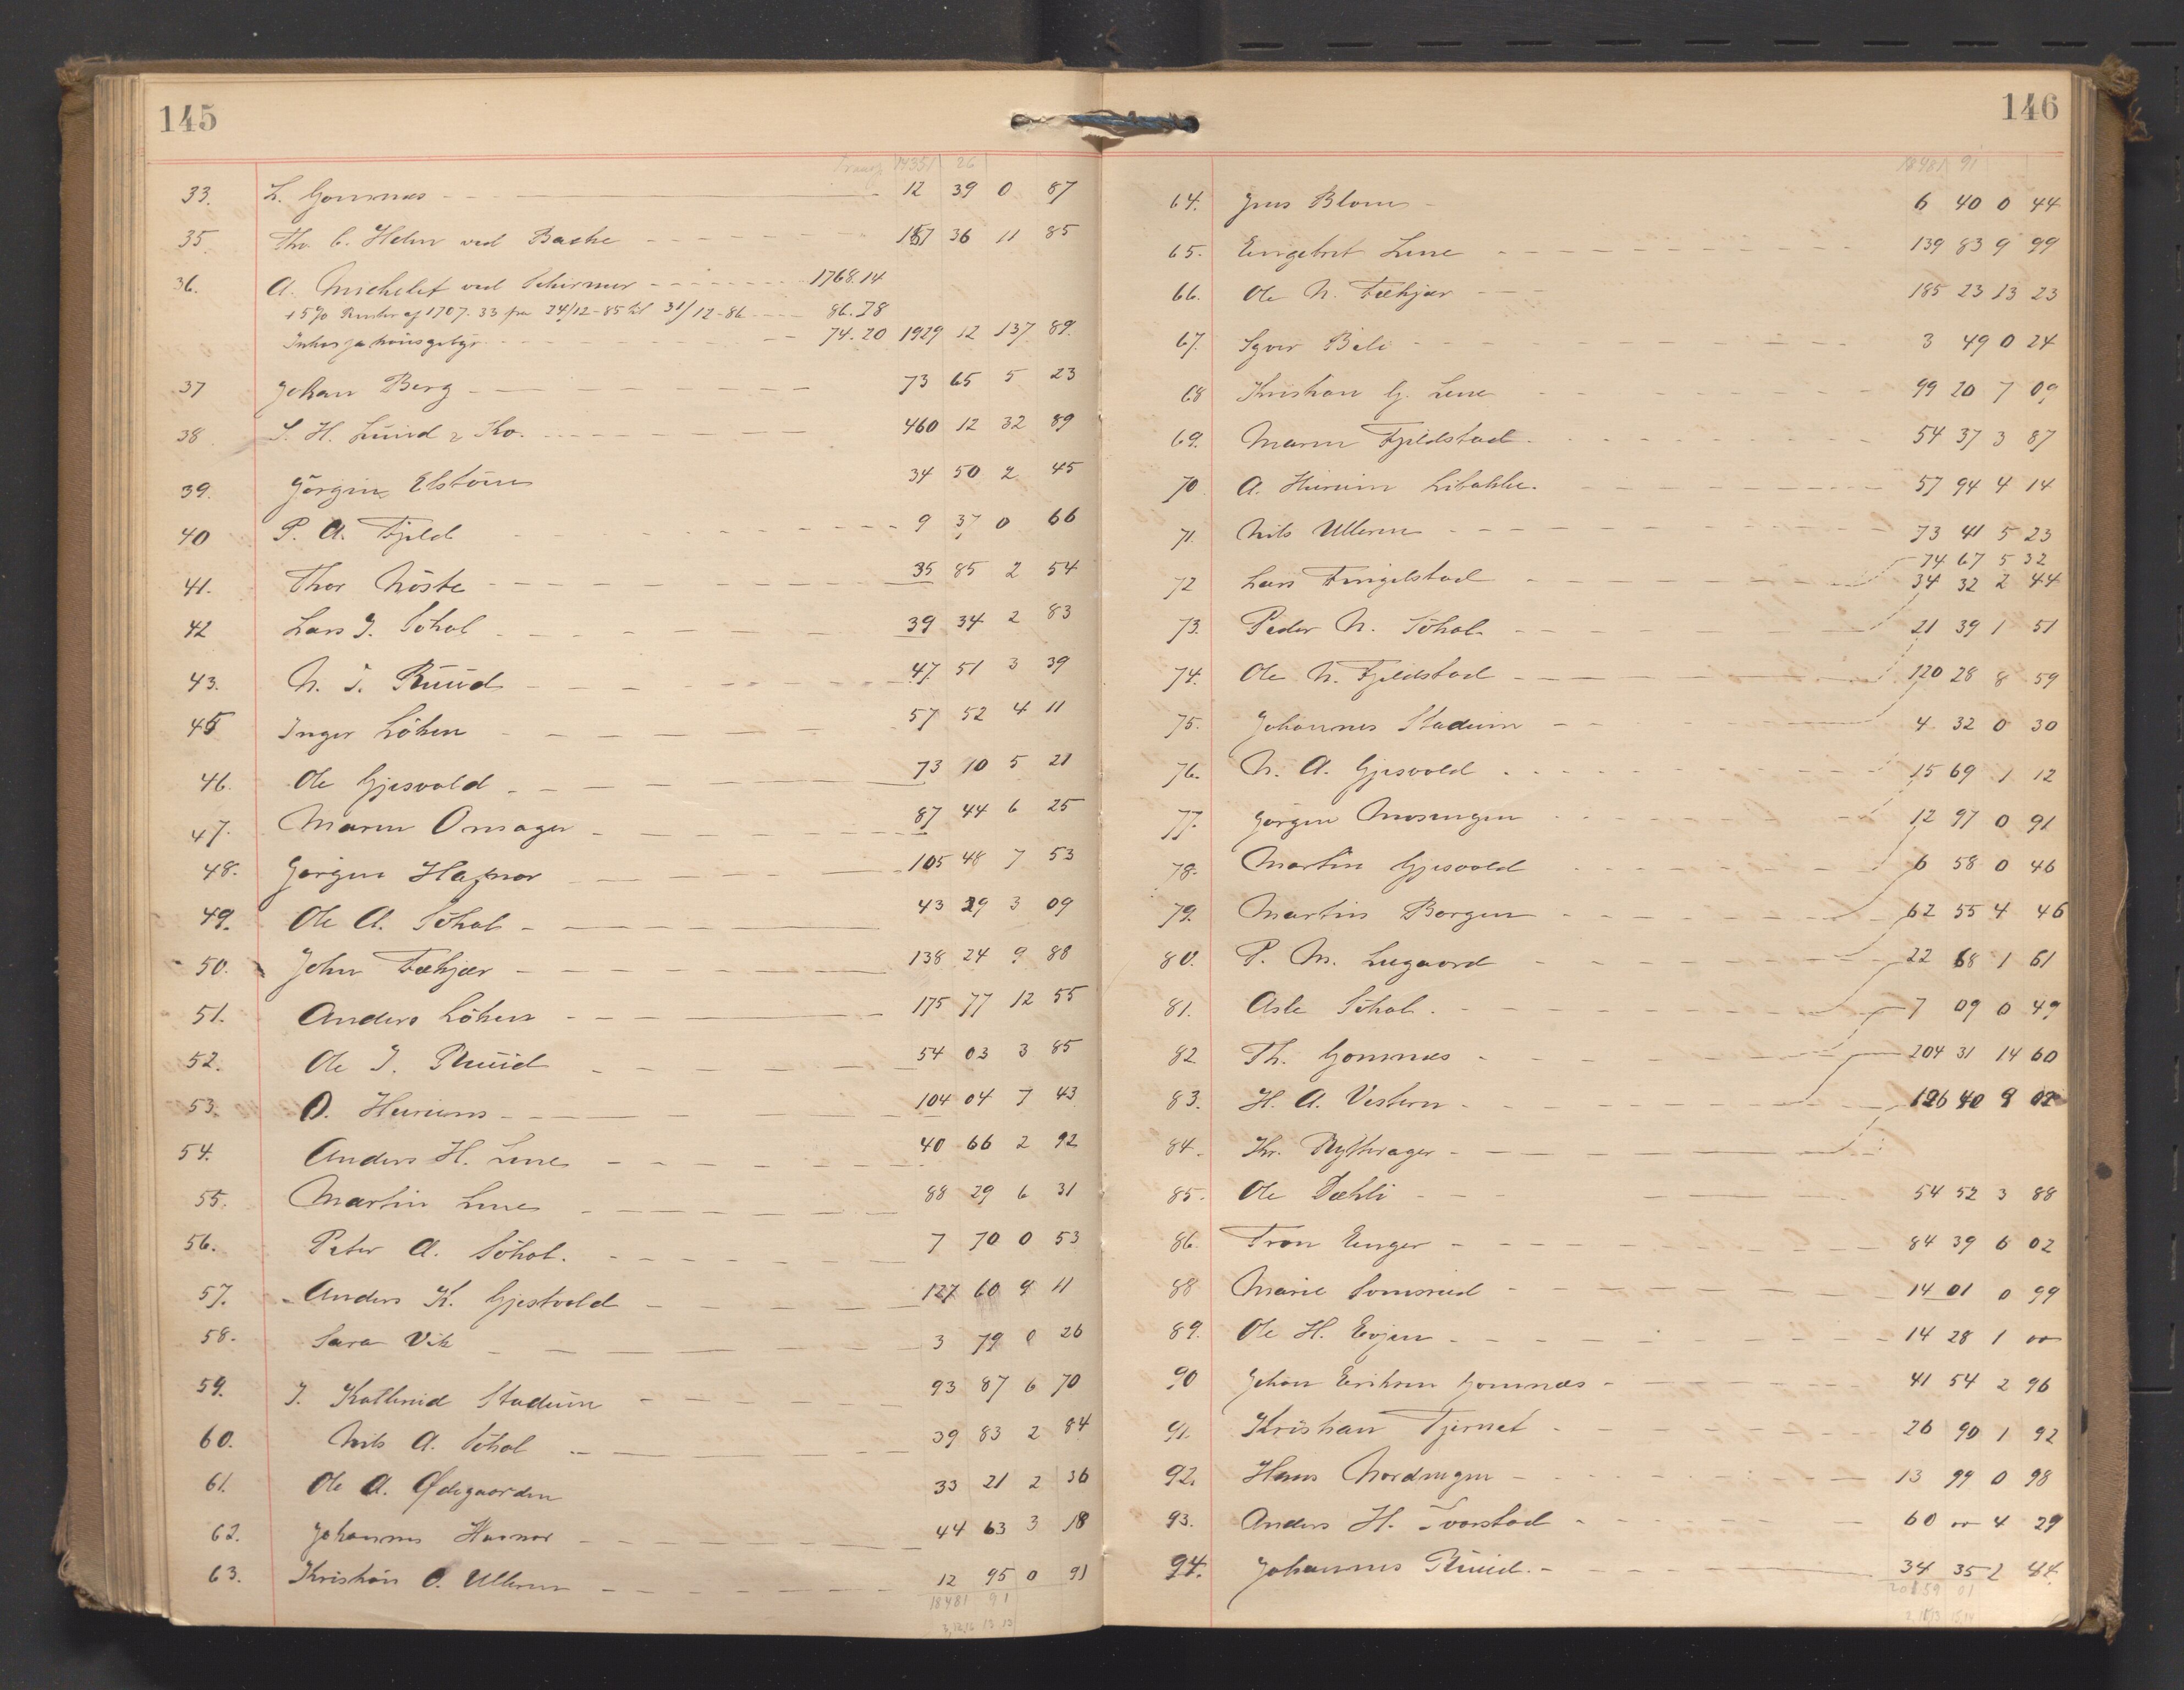 145
Transp. 14351 26
33. L. Gomnæs 12 39 0 87
35. Tho. C. Hehn ved Bache 167 36 11 85
36. A. Michelet ved Schirmer 1768.14
+ 5% Renter af 1707.33 fra 24/12-85 til 31/12-86 86.78
74.20 1929 12 137 89.
37 Johan Berg 73 65 5 23
38. S. H. Lund & Ko. 460 12 32 89
39. Jörgine Elstöm 34 50 2 45
40 P. A. Fjeld 9 37 0 66
41. Thor Nöste 35 85 2 54
42 Lars J. Söhol 39 34 2 83
43. N. J. Ruud 47 51 3 39
45 Inger Löken 57 52 4 11
46. Ole Gjesvold 73 10 5 21
47. Maren Onsager 87 44 6 25
48. Jörgen Hafnor 105 48 7 53
49. Ole A. Söhol 43 29 3 09
50. John Fækjær 138 24 9 88
51. Anders Löken 175 77 12 55
52. Ole J. Ruud 54 03 3 85
53. O. Hurum 104 04 7 43
54. Anders H. Lene 40 66 2 92
55. Martin Lene 88 29 6 31
56. Peter A. Söhol. 7 70 0 53
57. Anders K. Gjestvold 127 60 9 11
58. Sara Vik 3 79 0 26
59. J. Kattenid Stadum 93 87 6 70
60. Nils A. Söhol 39 83 2 84
61. Ole A. Ødegaarden 33 21 2 36
62. Johannes Havnor 44 63 3 18
63. Kristian O. Ulleren 12 95 0 91
18481 91
146
18481 91
64. Jens Blom 6 40 0 44
65. Engebret Lene 139 83 9 99
66. Ole N. Fækjær 185 23 13 23
67. Syver Bili 3 49 0 24
68 Kristian G. Lene 99 20 7 09
69. Maren Fjeldstad. 54 37 3 87
70. A. Hurum Libakke. 57 94 4 14
71. Nils Ulleren 73 41 5 23
74 67 5 32
72 Lars Fingelstad 34 32 2 44
73. Peder N. Söhol 21 39 1 51
74. Ole N. Fjeldstad 120 28 8 59
75. Johannes Stadum 4 32 0 30
76. N. A. Gjesvold 15 69 1 12
77. Jörgen Mosengen 12 97 0 91
78. Martin Gjesvold 6 58 0 46
79. Martin Borgen 62 55 4 46
80. P. M. Leegaard 22 68 1 61
81. Asle Söhol. 7 09 0 49
82 Th. Gomnæs 204 31 14 60
83. H. A. Vestern 126 40 9 02
84. Kr. Rytterager
85. Ole Dæhli 54 52 3 88
86. Tron Enger 84 39 6 02
88 Marie Somsrud 14 01 0 99
89. Ole H. Evjen 14 28 1 00
90 Johan Eriksen Gomnæs 41 54 2 96
91. Kristian Tjernet 26 90 1 92
92. Hans Nordengen 13 99 0 98
93. Anders H. Svarstad 60 00 4 29
94. Johannes Ruud. 34 35 2 44.
20159 01